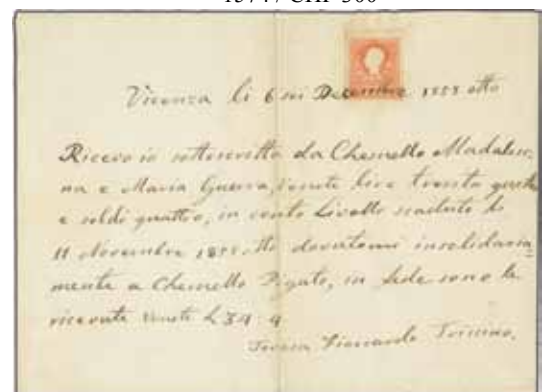 13744 CHF 300
Vicenza li 6 sei Decembre 1858 otto
Ricevo io sottoscritta da Chemello Madalen-
na e Maria Guerra, venete lire trenta
e soldi quattro, in conto Livello scaduto li
11 Novembre 1858 otto dovutomi insolidaria-
mente a Chemello Pigato, in fede sono le
ricevute venete L 34 4
Teresa Trissino.